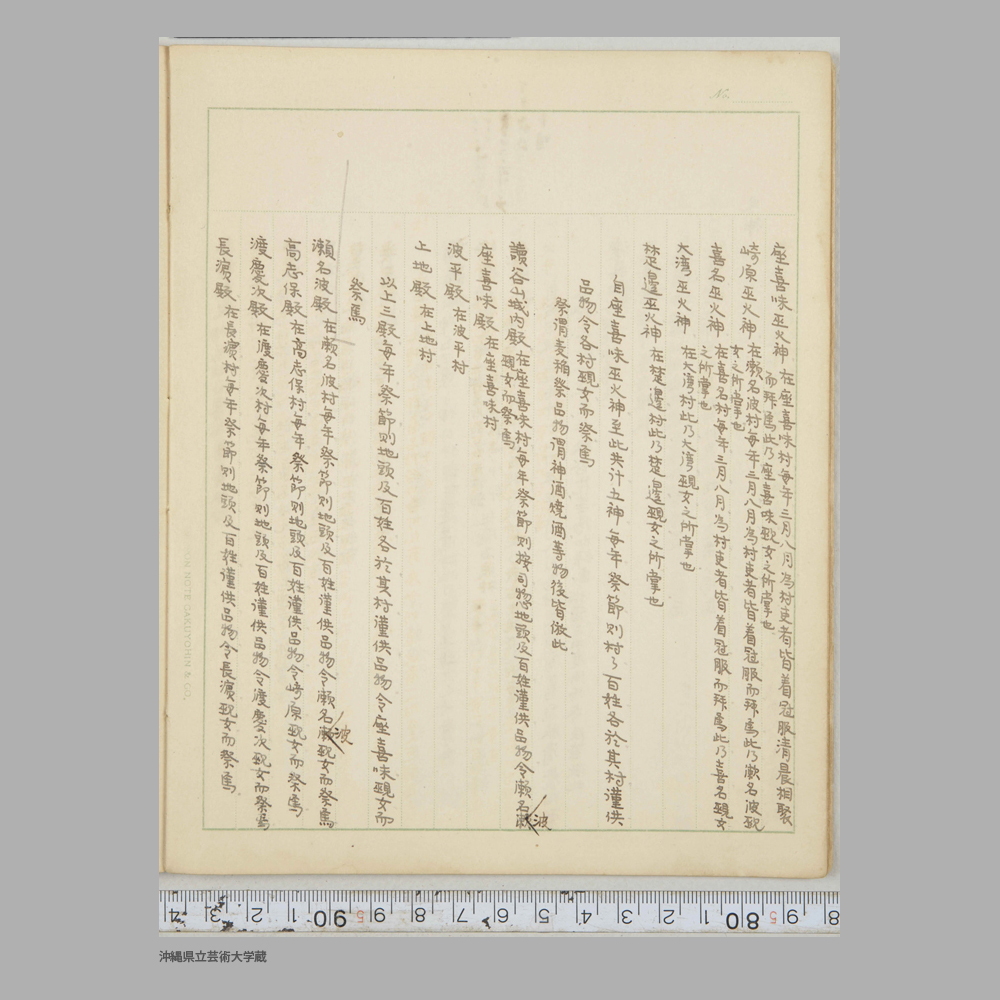 No.
座喜味巫火神 在座喜味村毎年三月八月為村吏者皆着冠服清晨相聚
而拜焉此乃座喜味覡女之所掌也
崎原巫火神 在瀬名波村毎年三月八月為村吏者皆着冠服而拜焉此乃瀬名波覡
女之所掌也
喜名巫火神 在喜名村毎年三月八月為村吏者皆着冠服而拜焉此乃喜名覡女
之所掌也
大湾巫火神 在大湾村此乃大湾覡女之所掌也
楚邊巫火神 在楚邊村此乃楚邊覡女之所掌也
自座喜味巫火神至此共計五神毎年祭節則村々百姓各於其村謹供
品物令各村覡女而祭焉
祭謂麦稲祭品物謂神酒焼酒等物後皆倣此
讀谷山城内殿 在座喜味村毎年祭節則按司惣地頭及百姓謹供品物令瀬名波
覡女而祭焉
座喜味殿 在座喜味村
波平殿 在波平村
上地殿 在上地村
以上三殿毎年祭節則地頭及百姓各於其村謹供品物令座喜味覡女而
祭焉
瀬名波殿 在瀬名波村毎年祭節則地頭及百姓謹供品物令瀬名波覡女而祭焉
高志保殿 在高志保村毎年祭節則地頭及百姓謹供品物令崎原覡女而祭焉
渡慶次殿 在渡慶次村毎年祭節則地頭及百姓謹供品物令渡慶次覡女而祭焉
長濵殿 在長濵村毎年祭節則地頭及百姓謹供品物令長濵覡女而祭焉
NOTE GAKUYOHIN & CO.
4 3 2 1 90 5 9 8 7 6 5 4 3 2 1 80 5 9 8
沖縄県立芸術大学蔵